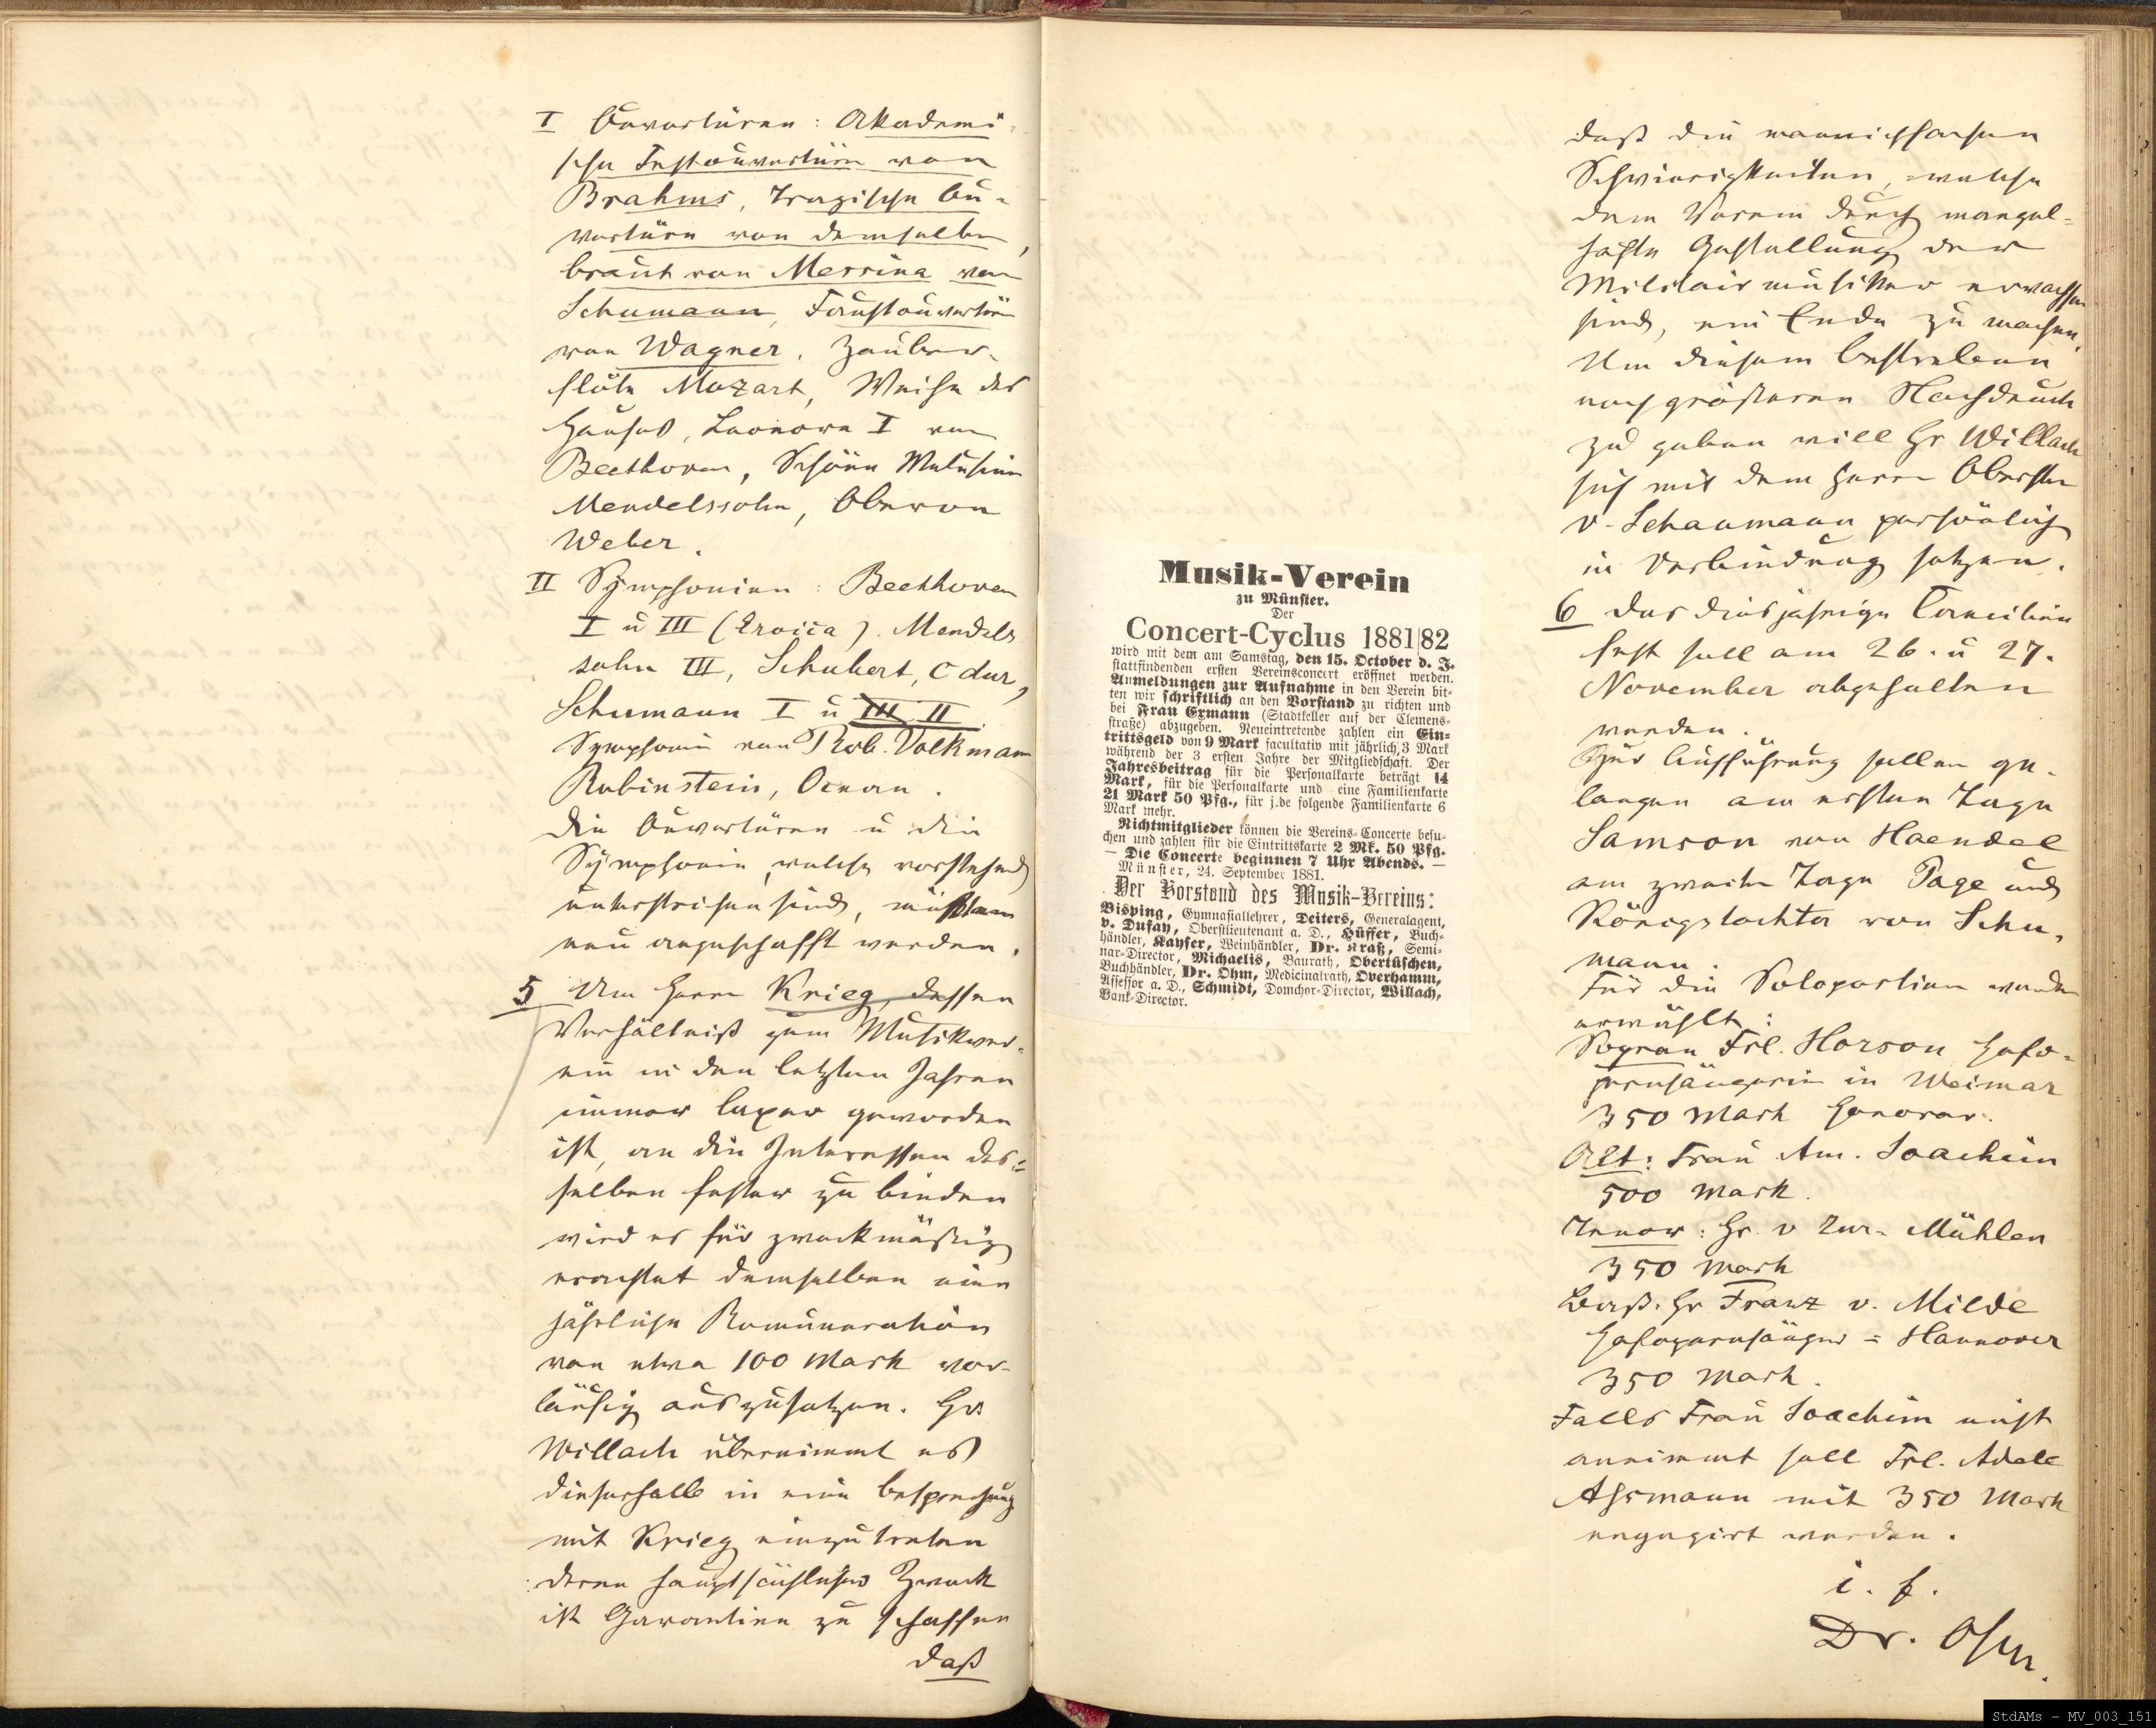 I Ouvertüren: Akademi-
sche Festouvertüre von
Brahms, Tragische Ou-
vertüre von demselben,
Braut von Messina von
Schumann, Faustouvertüre
von Wagner, Zauber-
flöte Mozart, Weihe des
Hauses, Leonore I von
Beethoven, Schöne Melusine
Mendelssohn, Oberon
Weber.
II Symphonien: Beethoven
I u III (Eroica). Mendels
sohn III, Schubert, C dur,
Schumann I u III II
Symphonie von Rob. Volkmann
Rubinstein, Ocean.
Die Ouvertüren u die
Symphonie, welche vorstehend
unterstrichen sind, müßten
neu angeschafft werden.
5 Um Herrn Krieg, dessen
Verhältniß zum Musikver-
ein in den letzten Jahren
immer laxer geworden
ist, an die Interessen des-
selben fester zu binden
wird es für zweckmäßig
erachtet demselben eine
jährliche Remuneration
von etwa 100 Mark vor-
läufig auszusetzen. Hr
Willach übernimmt es
dieserhalb in eine Besprechung
mit Krieg einzutreten
deren hauptsächlicher Zweck
ist Garantien zu schaffen
daß
Musik-Verein
zu Münster.
Der
Concert-Cyclus 1881/82
wird mit dem am Samstag, den 15. October d. J.
stattfindenden ersten Vereinsconcert eröffnet werden.
Anmeldungen zur Aufnahme in den Verein bit-
ten wir schriftlich an den Vorstand zu richten und
bei Frau Exmann (Stadtkeller auf der Clemens-
straße) abzugeben. Neueintretende zahlen ein Ein-
trittsgeld von 9 Mark facultativ mit jährlich 3 Mark
während der 3 ersten Jahre der Mitgliedschaft. Der
Jahresbeitrag für die Personalkarte beträgt 14
Mark, für die Personalkarte und eine Familienkarte
21 Mark 50 Pfg., für j.de folgende Familienkarte 6
Mark mehr.
Nichtmitglieder können die Vereins-Concerte besu-
chen und zahlen für die Eintrittskarte 2 Mk. 50 Pfg.
— Die Concerte beginnen 7 Uhr Abends. —
Münster, 24. September 1881.
Der Vorstand des Musik-Vereins:
Bisping, Gymnasiallehrer, Deiters, Generalagent,
v. Dufay, Oberstlieutenant a. D., Hüffer, Buch-
händler, Kayser, Weinhändler, Dr. Kraß, Semi-
nar-Director, Michaelis, Baurath, Obertüschen,
Buchhändler, Dr. Ohm, Medicinalrath, Overhamm,
Assessor a. D., Schmidt, Domchor-Director, Willach,
Bank-Director.
daß die mannichfachen
Schwierigkeiten, welche
dem Verein durch mangel-
hafte Gestellung der
Militairmusiker erwachsen
sind, ein Ende zu machen.
Um diesem Bestreben
noch größeren Nachdruck
zu geben will Hr Willach
sich mit dem Herrn Obersten
v. Schaumann persönlich
in Verbindung setzen.
6 Das diesjährige Caecilien
fest soll am 26. u 27.
November abgehalten
werden.
Zur Aufführung sollen ge-
langen am ersten Tage
Samson von Haendel
am zweiten Tage Page und
Königstochter von Schu-
mann.
Für die Solopartien wurden
erwählt:
Sopran Frl. Horson Hofo-
pernsängerin in Weimar
350 Mark Honorar.
Alt: Frau Am. Joachim
500 Mark.
Tenor: Hr. v Zur-Mühlen
350 Mark
Baß. Hr Franz v. Milde
Hofopernsänger - Hannover
350 Mark.
Falls Frau Joachim nicht
annimmt soll Frl. Adele
Assmann mit 350 Mark
engagirt werden.
i. f.
Dr. Ohm.
StdAMs - MV_003_151